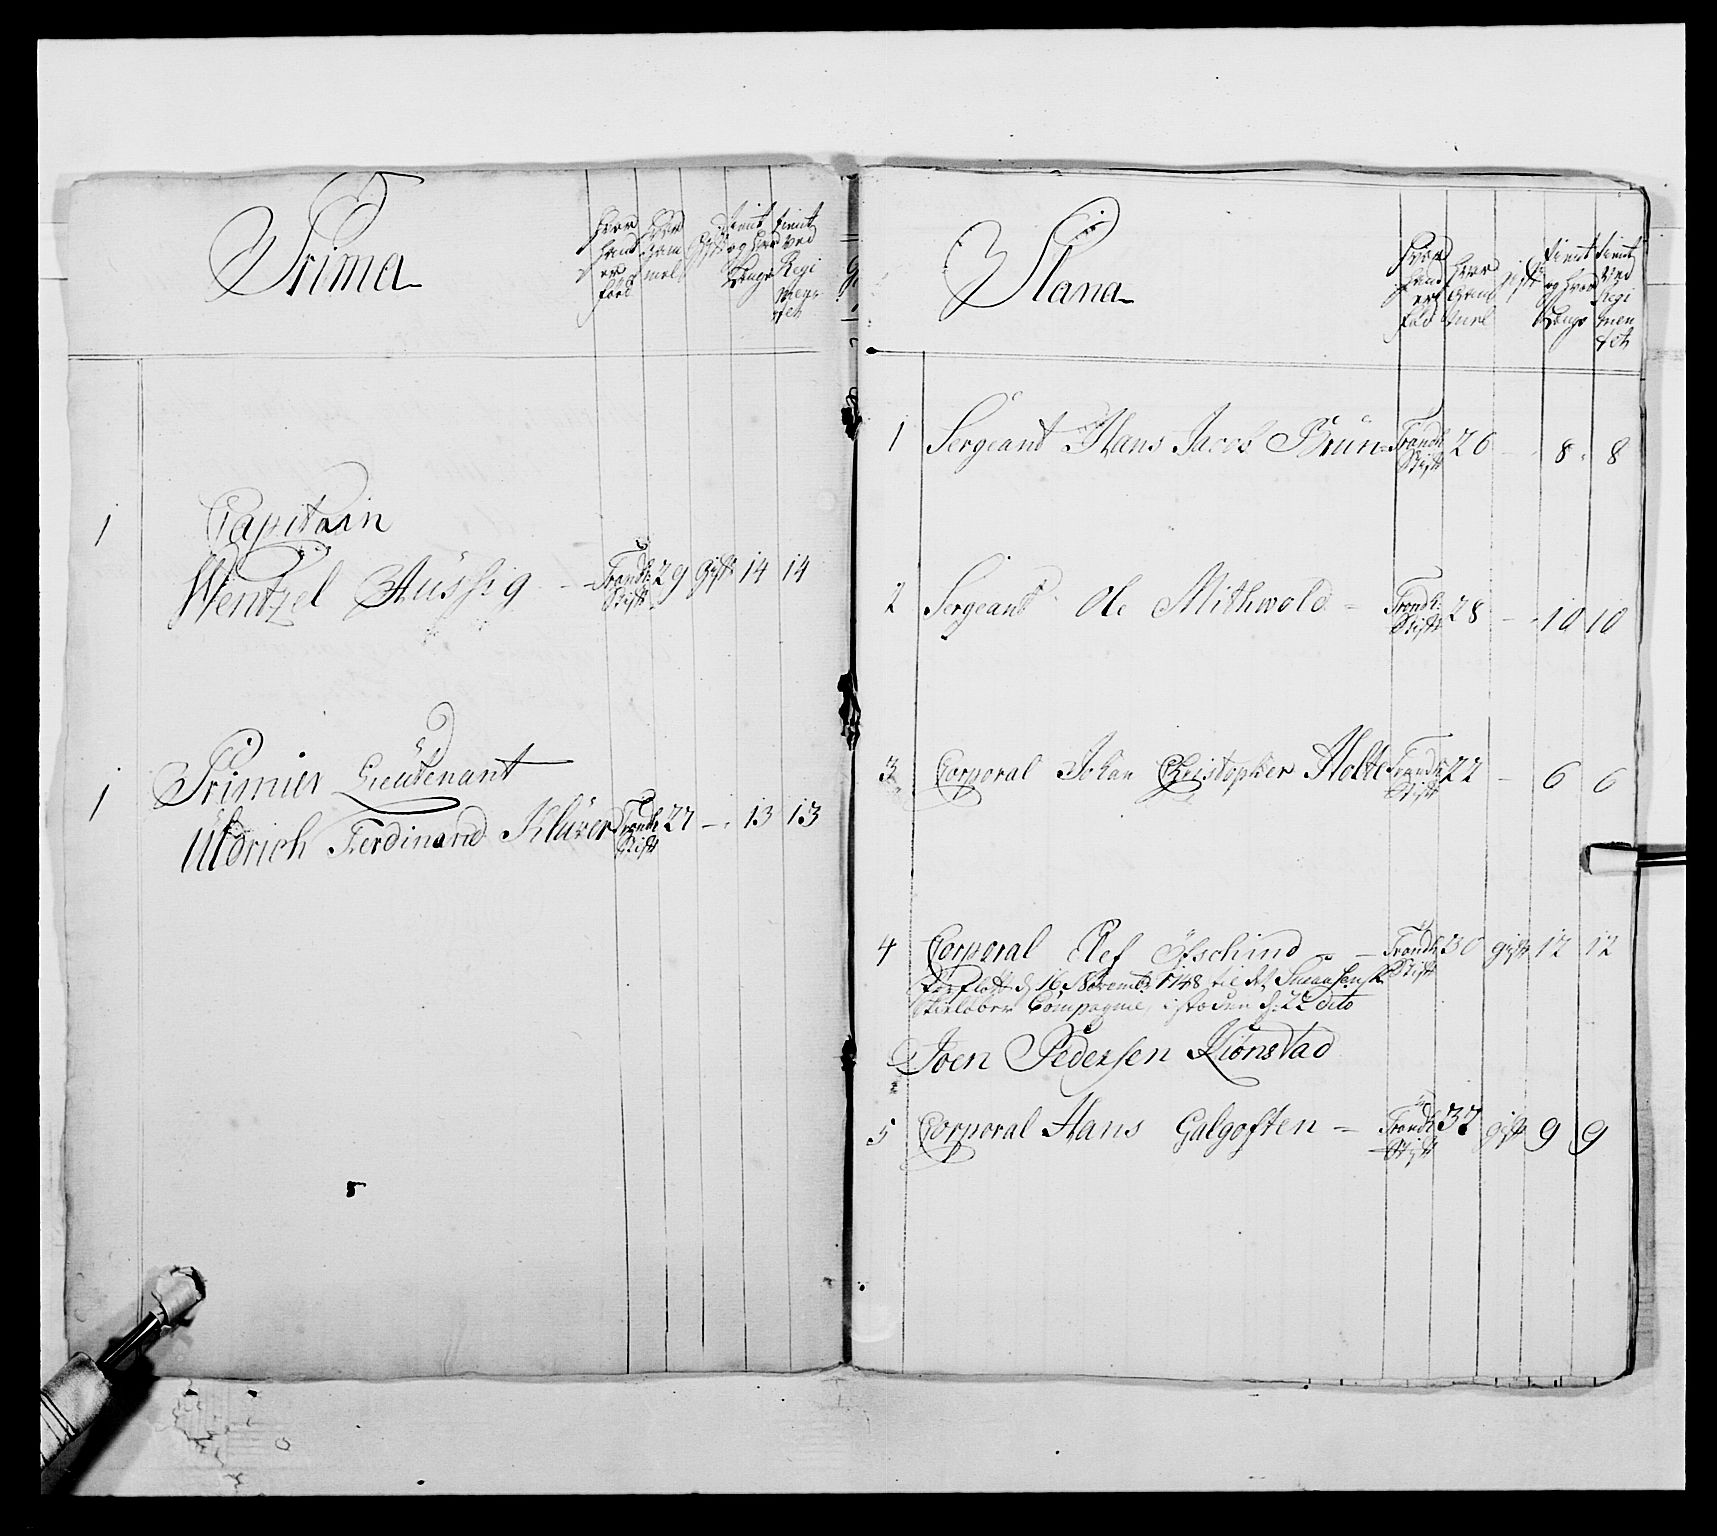 Prima
Hvor hand er fød
Hvor gam mel
Gift
tient og hvor Længe
tient ved Regi men tet
1 Capitain
Wentzel Aussig Trondh. Stift 29 Gift 14 14
1 Primier Lieutenant
Uldrich Ferdinand Klüver Trondh. Stift 27 - 13 13
Plana
Hvor hand er fød
Hvor gammel
gift
tient og hvor Længe
tient ved Regi men tet
1 Sergeant Hans Jacob Brun Trondh. Stift 26 - 8 8
2 Sergeant Ole Mithwold Trondh. Stift 28 - 10 10
3 Corporal Johan Christopher Holte Trondh. Stift 22 - 6 6
4 Corporal Elef Trondh. Stift 30 gift 12 12
d. 16 Novemb. 1748 til det
Skieløber Compagnie, i steden d. 22 dito
Joen Pedersen Kiönstad
5 Corporal Hans Galgoften Trondh. Stift 37 gift 9 9